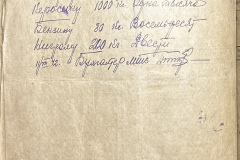 Керосину 1000 кг. Одна тысяча
Бензину 80 кг. Восемьдесят
Нигролу 200 кг. Двести
Бухгалтер МТС